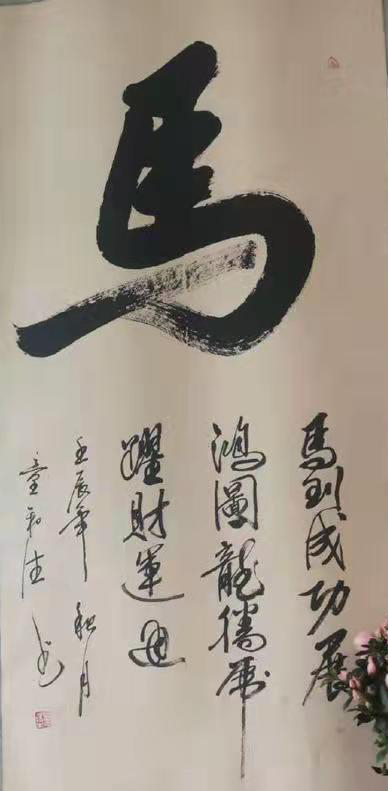 馬
馬到成功展
鴻圖龍騰虎
躍財運通
壬辰年秋月
童和法书